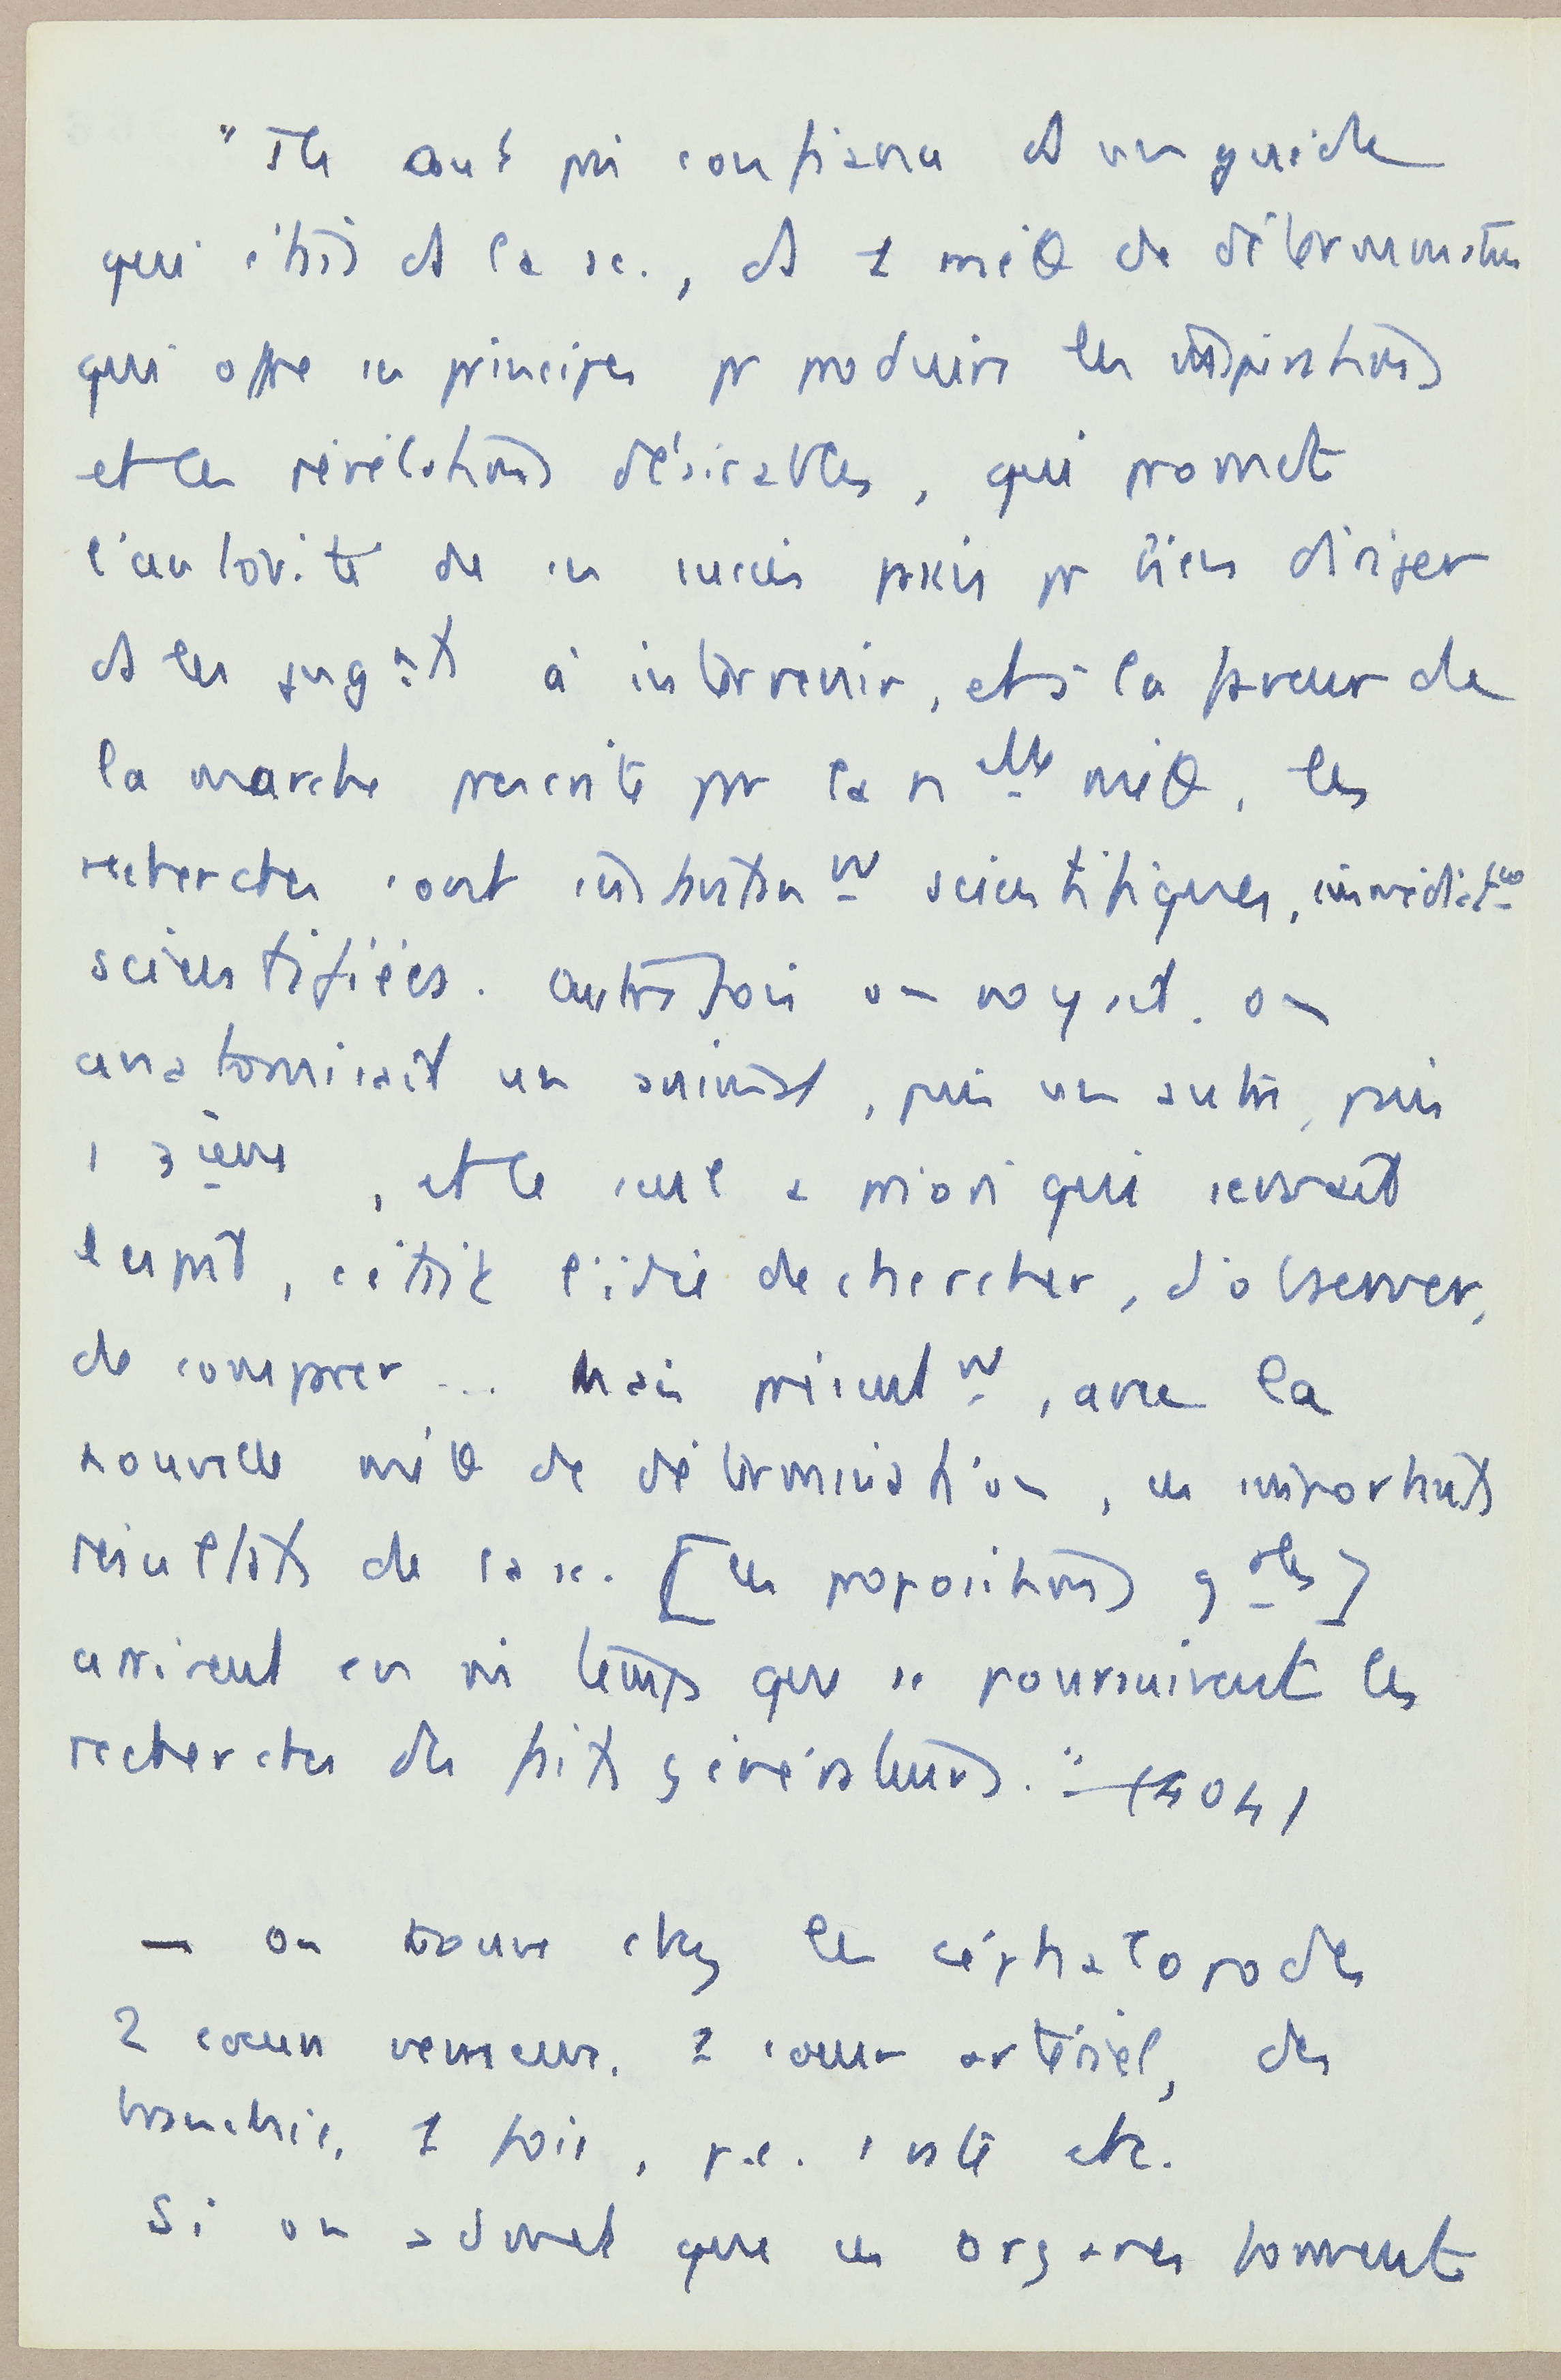 "Ils ont pris confiance ds un guide
qui était ds la sc., ds 1 méθ de détermination
qui offre ses principes pr produire les inspirations
et les révélations désirables, qui promet
l'autorité de ses succès passés pr bien diriger
ds les jugts à intervenir, et à la faveur de
la marche prescrite par la nelle méθ, les
recherches sont instantanemt scientifiques, immédiatemt
scientifiées. autrefois on voyait. on
anatomisait un animal, puis un autre, puis
1 3ième, et le seul a priori qui servait
l'esprit, c'était l'idée de chercher, d'observer,
de comparer... Mais présentemt, avec la
nouvelle méθ de détermination, ces importants
résultats de la sc. [les propositions gales]
arrivent en mm temps que se poursuivent les
recherches des faits générateurs." (404)
— on trouve chez les céphalopodes
2 coeurs veineux, 1 coeur artériel, des
branchies, 1 foie, etc.
Si on admet que ces organes forment